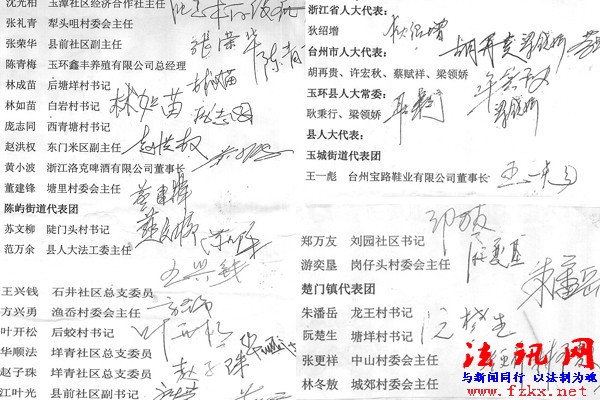 沈光柏 玉潭社区经济合作社主任
张礼青 犁头咀村委会主任
张荣华 县前社区副主任
张荣华
陈青梅 玉环鑫丰养殖有限公司总经理
陈青
林成苗 后塘垟村书记
林如苗 白岩村书记
林如苗
庞志同 西青塘村书记
庞志同
赵洪权 东门米区副主任
赵洪权
黄小波 浙江洛克啤酒有限公司董事长
董建锋 塘里村委会主任
董建锋
陈屿街道代表团
苏文柳 陡门头村书记
苏文柳
范万余 县人大法工委主任
王兴钱
王兴钱 石井社区总支委员
方兴勇 渔岙村委会主任
叶开松 后蛟村书记
叶开松
华顺法 垟青社区总支委员
赵子珠 垟青社区总支委员
赵子珠
江叶光 县前社区副书记
浙江省人大代表：
狄绍增
狄绍增
台州市人大代表：
胡再贵、许宏秋、蔡赋祥、梁领娇
胡再贵 梁领娇
玉环县人大常委：
耿秉行、梁领娇
梁领娇
县人大代表：
玉城街道代表团
王一彪 台州宝路鞋业有限公司董事长
王一彪
郑万友 刘园社区书记
游奕垦 岗仔头村委会主任
楚门镇代表团
朱潘岳 龙王村书记
朱潘岳
阮楚生 塘垟村书记
阮楚生
张更祥 中山村委会主任
林冬敖 城郊村委会主任
法讯网
与新闻同行 以法制为魂
www.fzkx.net